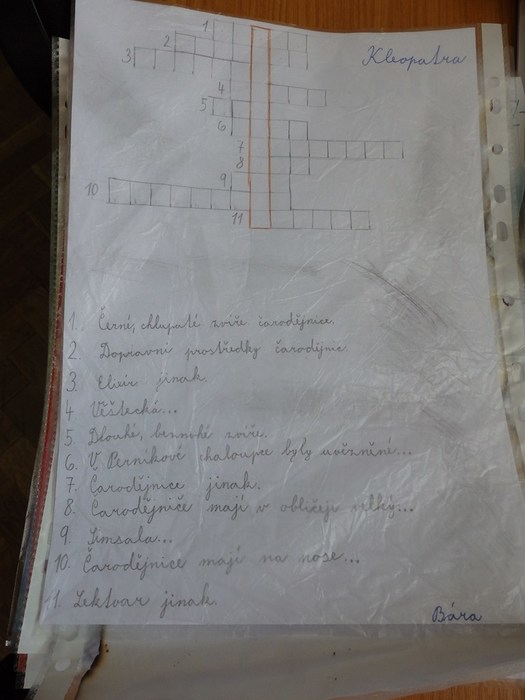 1
2
3
Kleopatra
4
5
6
7
8
9
10
11
1. Černé, chlupaté zvíře čarodějnice.
2. Dopravní prostředky čarodějnic
3. Elixír jinak.
4 Věštecká...
5 Dlouhé, beznohé zvíře.
6. V Perníkové chaloupce byly uvěznění...
7. Čarodějnice jinak.
8. Čarodějnice mají v obličeji velký...
9. Simsala...
10. Čarodějnice mají na nose...
11. Lektvar jinak.
Bára